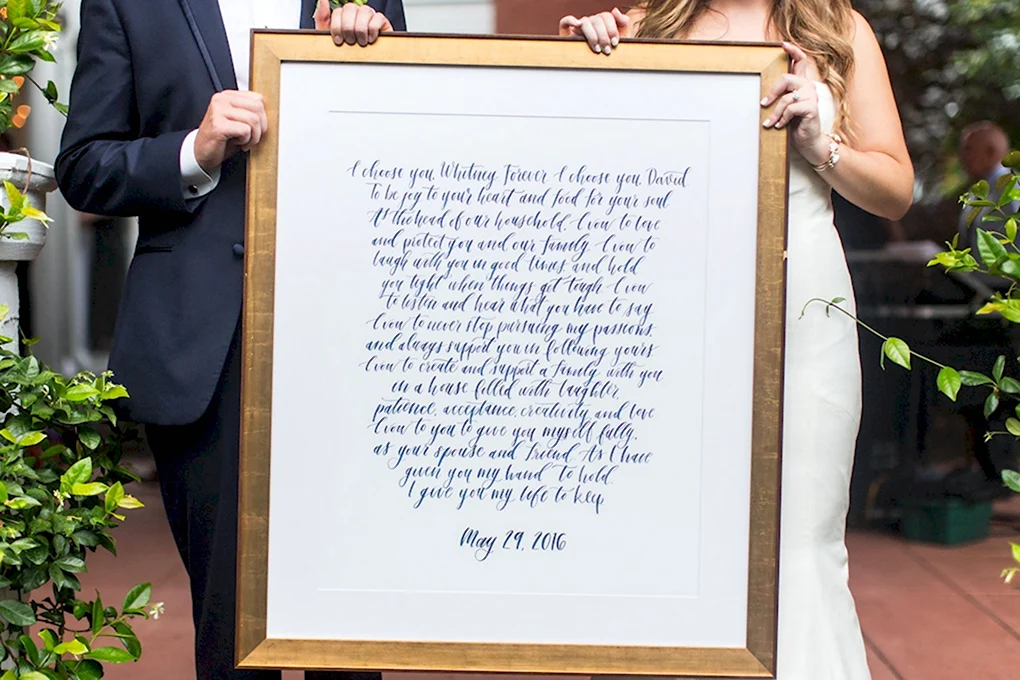 I choose you, Whitney. Forever I choose you, David
To be joy to your heart and food for your soul.
As the head of our household. I vow to love
and protect you and our family. I vow to
laugh with you in good times, and hold
you tight when things get tough. I vow
to listen and hear what you have to say
I vow to never stop pursuing my passions
and always support you in following yours
I vow to create and support a family with you
in a house filled with laughter,
patience, acceptance, creativity and love
I vow to you to give you myself fully,
as your spouse and friend. As I have
given you my hand to hold.
I give you my life to keep
May 29, 2016